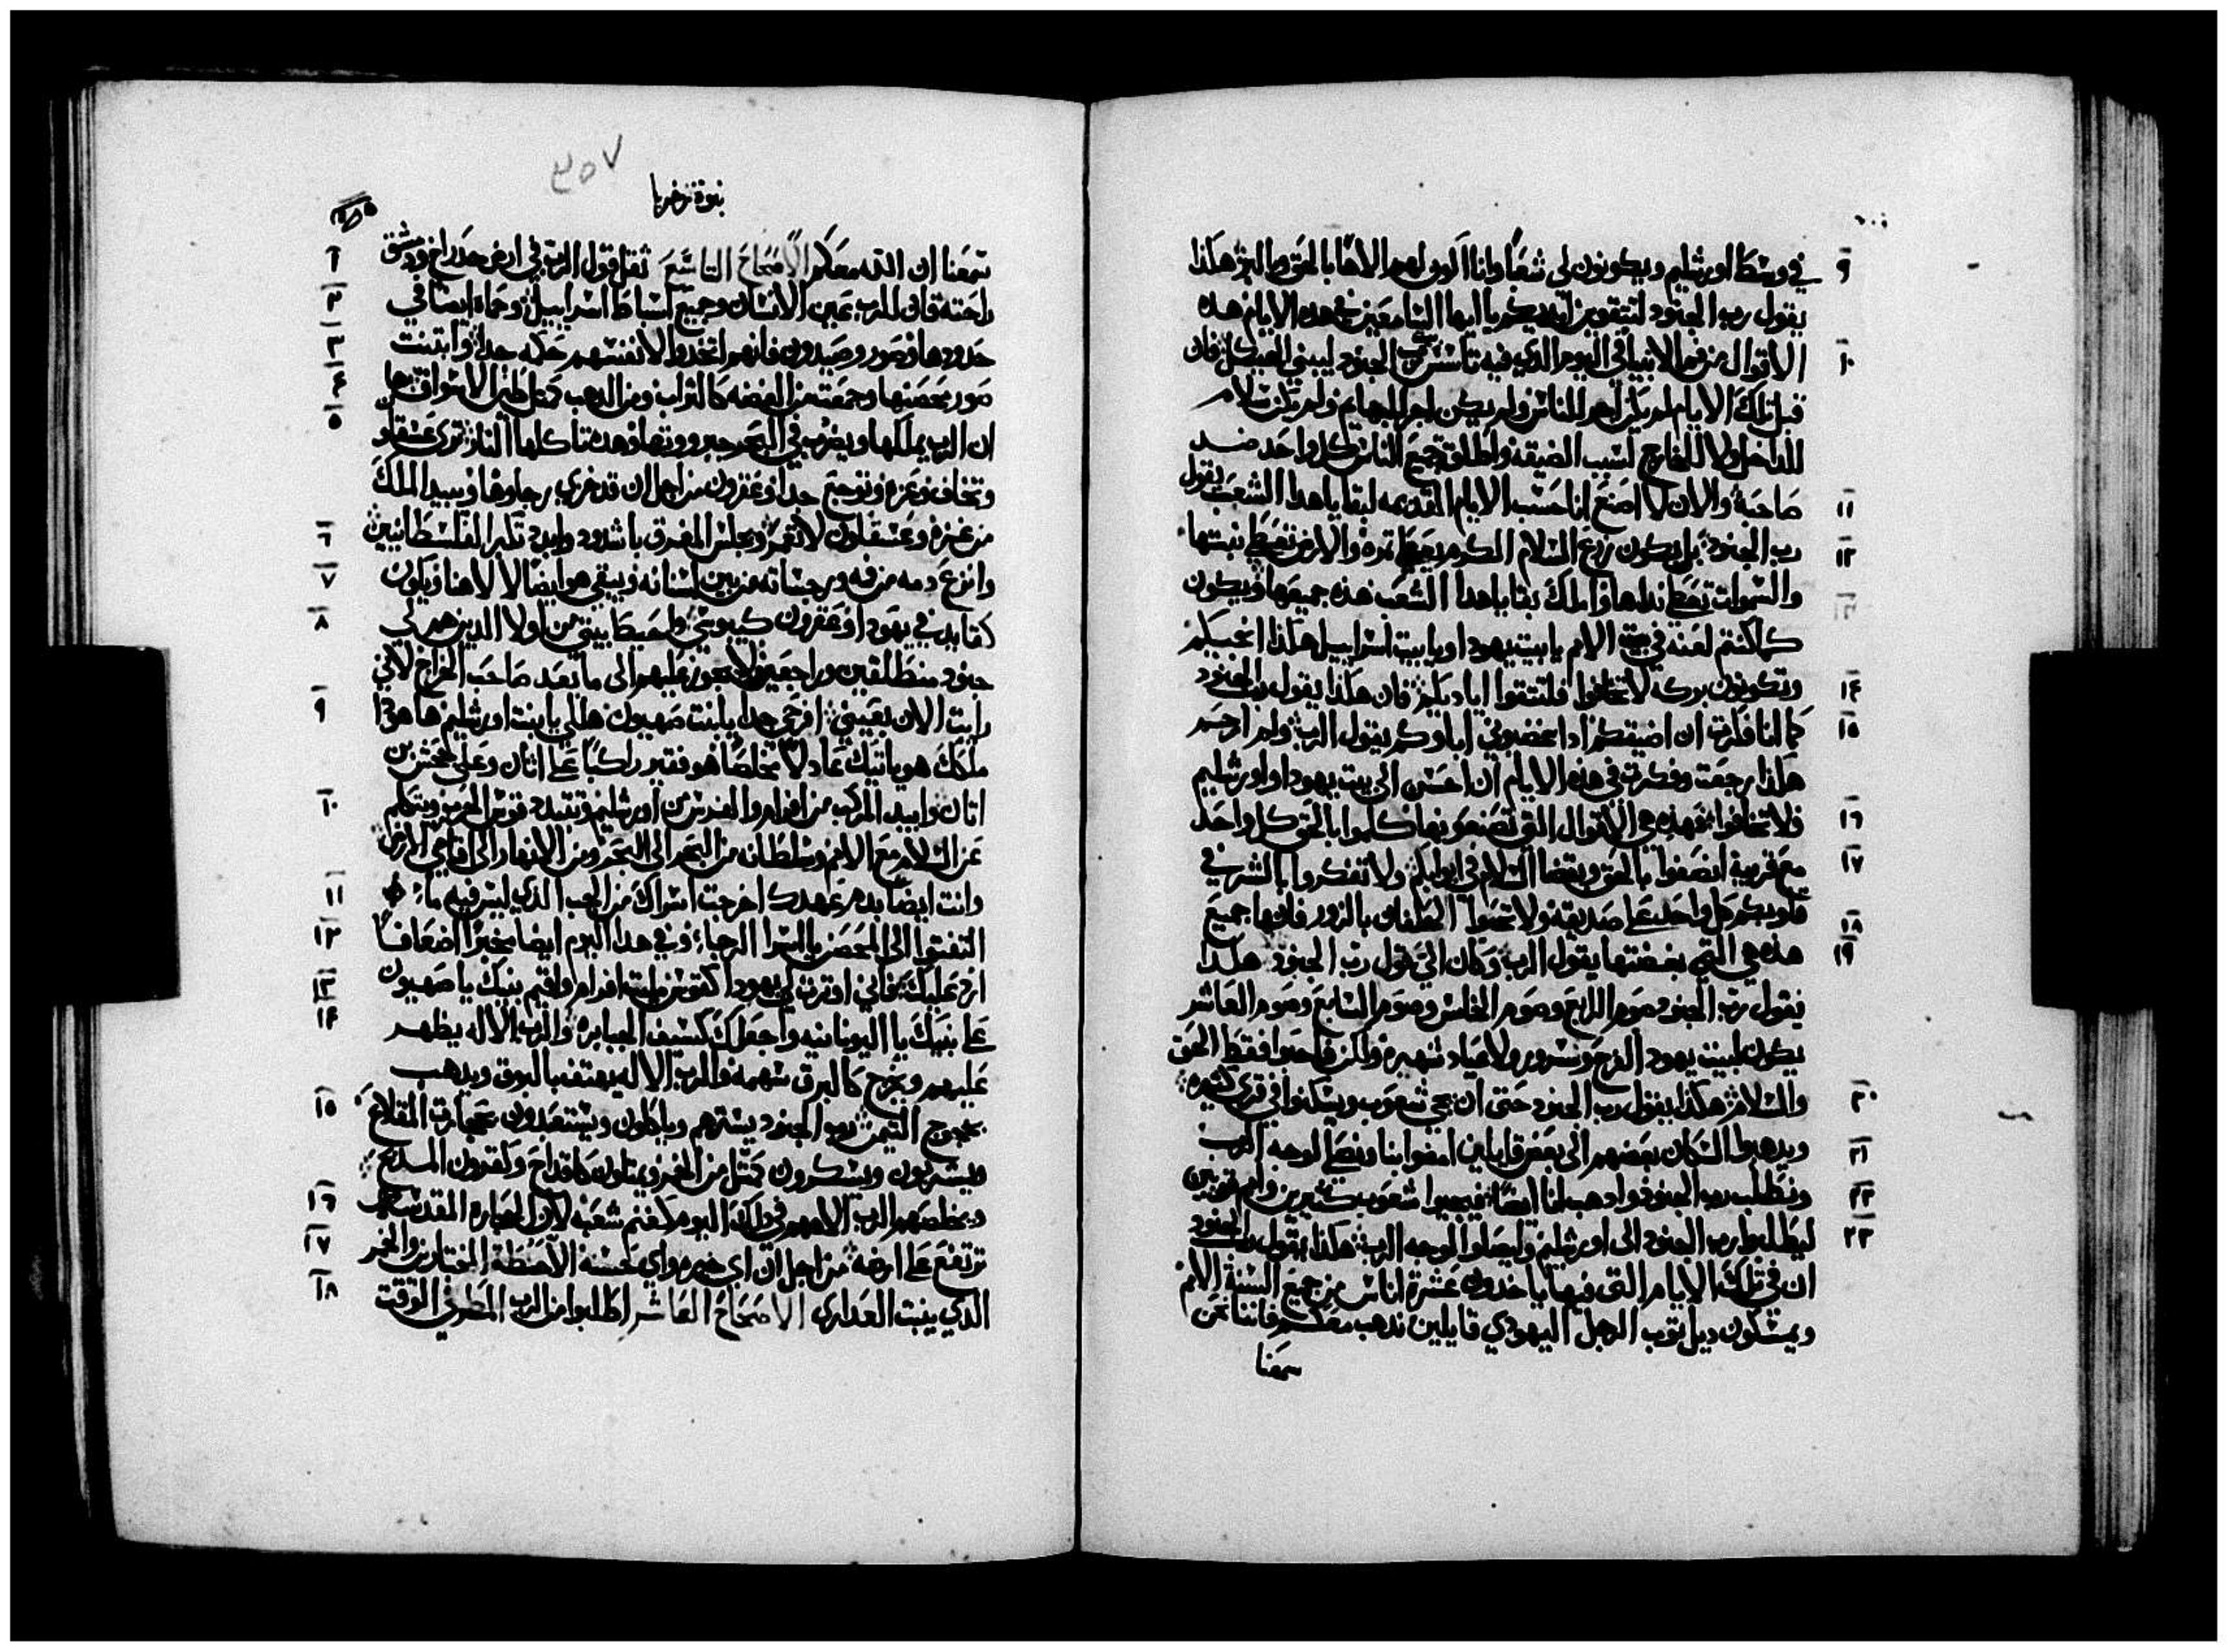 في وسط اورشليم ويكونون لي شعبًا وانا اكون لهم الاهًا بالحق والبر هكذا
٩
يقول رب الجنود لتتقوين ايديكم يا ايها السامعين في هده الايام هده
الاقوال من فم الانبيا في اليوم الدي فيه تاسس بيت رب الجنود ليبنى الهيكل فان
١٠
قبل تلك الايام لم يكن اجر للناس ولم يكن اجر للبهايم ولم يكن سلام
للداخل ولا للخارج لسبب الضيقه واطلقت جميع الناس كل واحد ضد
صاحبه والان لا اصنع انا حسب الايام القديمه لبقايا هدا الشعب يقول
١١
رب الجنود بل يكون زرع السلام الكرم يعطي تمره والارض تعطي نبتها
١٢
والسموات تعطي نداها واملك بقايا هدا الشعب هده جميعها ويكون
١٣
كما كنتم لعنه في الامم يا بيت يهودا ويا بيت اسراييل هكذا انجيكم
وتكونون بركه لا تخافوا فلتتقوا اياديكم فان هكذا يقول رب الجنود
١٤
كما انا فكرت ان اضيقكم ادا اغضبوني اباوكم يقول الرب ولم ارحم
١٥
هكذا رجعت وفكرت في هده الايام ان احسن الى بيت يهودا واورشليم
فلا تخافوا فهده هي الاقوال التي تصنعونها كلموا بالحق كل واحد
١٦
مع قريبه انصفوا بالحق وبقضا السلام في ابوابكم ولا تفكروا بالشر في
١٧
قلوبكم كل واحد على صديقه ولا تحبوا الحلفان بالزور فانها جميع
١٨
هده هي التي بغضتها يقول الرب وكان الي قول رب الجنود هكدا
١٩
يقول رب الجنود صوم الرابع وصوم الخامس وصوم السابع وصوم العاشر
يكون لبيت يهودا لفرح وسرور ولاعياد شهيره ولكن فاحبوا فقط الحق
والسلام هكدا يقول رب الجنود حتى ان تجي شعوب ويسكنوا في قرى كثيره
٢٠
ويدهبوا السكان بعضهم الى بعض قايلين امضوا بنا ونصلي لوجه الرب
٢١
ونطلب رب الجنود وادهب انا ايضًا فيجيوا شعوب كثيرين وامم قويين
٢٢
ليطلبوا رب الجنود الى اورشليم وليصلوا لوجه الرب هكدا يقول رب الجنود
٢٣
ان في تلك الايام التي فيها ياخدون عشرة اناس من جميع السنة الامم
ويمسكون ديل توب الرجل اليهودي قايلين ندهب معكم فاننا نحن
سمعنا
٣٥٧
نبوة زخريا
سمعنا ان الله معكم الاصحاح التاسع ثقل قول الرب في ارض حدراخ ودمشق
١
راحته فان للرب عين الانسان وجميع اسباط اسراييل وحماه ايضا في
٢
حدودها وصور وصيدون فانهم اتخدوا لانفسهم حكمه جدا وابتنت
٣
صور حصنها وجمعت من الفضه كالتراب ومن الدهب كمثل طين الاسواق ها
٤
ان الرب يملكها ويضرب في البحر جبروتها وهده تاكلها النار ترى عسقلون
٥
وتخاف وغزه وتوجع جدا وعقرون من اجل ان قد خزي رجاوها ويبيد الملك
من غزه وعسقلون لا تعمر ويجلس المفرق باشدود وابيد تكبر الفلسطانيين
٦
وانزع دمه من فمه ورجساته من بين اسنانه ويبقى هو ايضًا لالاهنا ويكون
٧
كقايد في يهودا وعقرون كيبوسي واحيط بيتي من اولا الدين هم لي
٨
جنود منطلقين وراجعين ولا يجوز عليهم الى ما بعد صاحب الخراج لاني
رايت الان بعيني افرحي جدا يا بنت صهيون هللي يا بنت اورشليم هاهودا
٩
ملكك هو ياتيك عادلًا مخلصًا هو فقير راكبًا على اتان وعلى جحش بن
اتان وابيد المركب من افرام والفرس من اورشليم وتتبدد قوس الحرب ويتكلم
١٠
عن السلام مع الامم وسلطانه من البحر الى البحر ومن الانهار الى اقاصي الارض
وانت ايضا بدم عهدك اخرجت اسراك من الجب الدي ليس فيه ماء
١١
التفتوا الى الحصن يا اسرا الرجاء وفي هدا اليوم ايضا مخبرًا اضعافًا
١٢
ارد عليك فاني اوترت لي يهودا كقوس مليت افرام واقيم بنيك يا صهيون
١٣
على بنيك يا اليونانيه واجعلك كسيف الجبابره والرب الاله يظهر
١٤
عليهم ويخرج كالبرق سهمه والرب الاله يهتف بالبوق ويدهب
بعجوج التيمن رب الجنود يسترهم وياكلون ويستعبدون بحجارة المقلاع
١٥
ويشربون ويسكرون كمثل من الخمر ويمتلون كاقداح وكقرون المدبح
ويخلصهم الرب الاههم في دلك اليوم كغنم شعبه لان الحجاره المقدسه
١٦
ترتفع على ارضه من اجل ان اي خيره واي حسنه الا حنطة المختارين والخمر
١٧
الدي ينبت العدارى الاصحاح العاشر اطلبوا من الرب المطر في الوقت
١٨